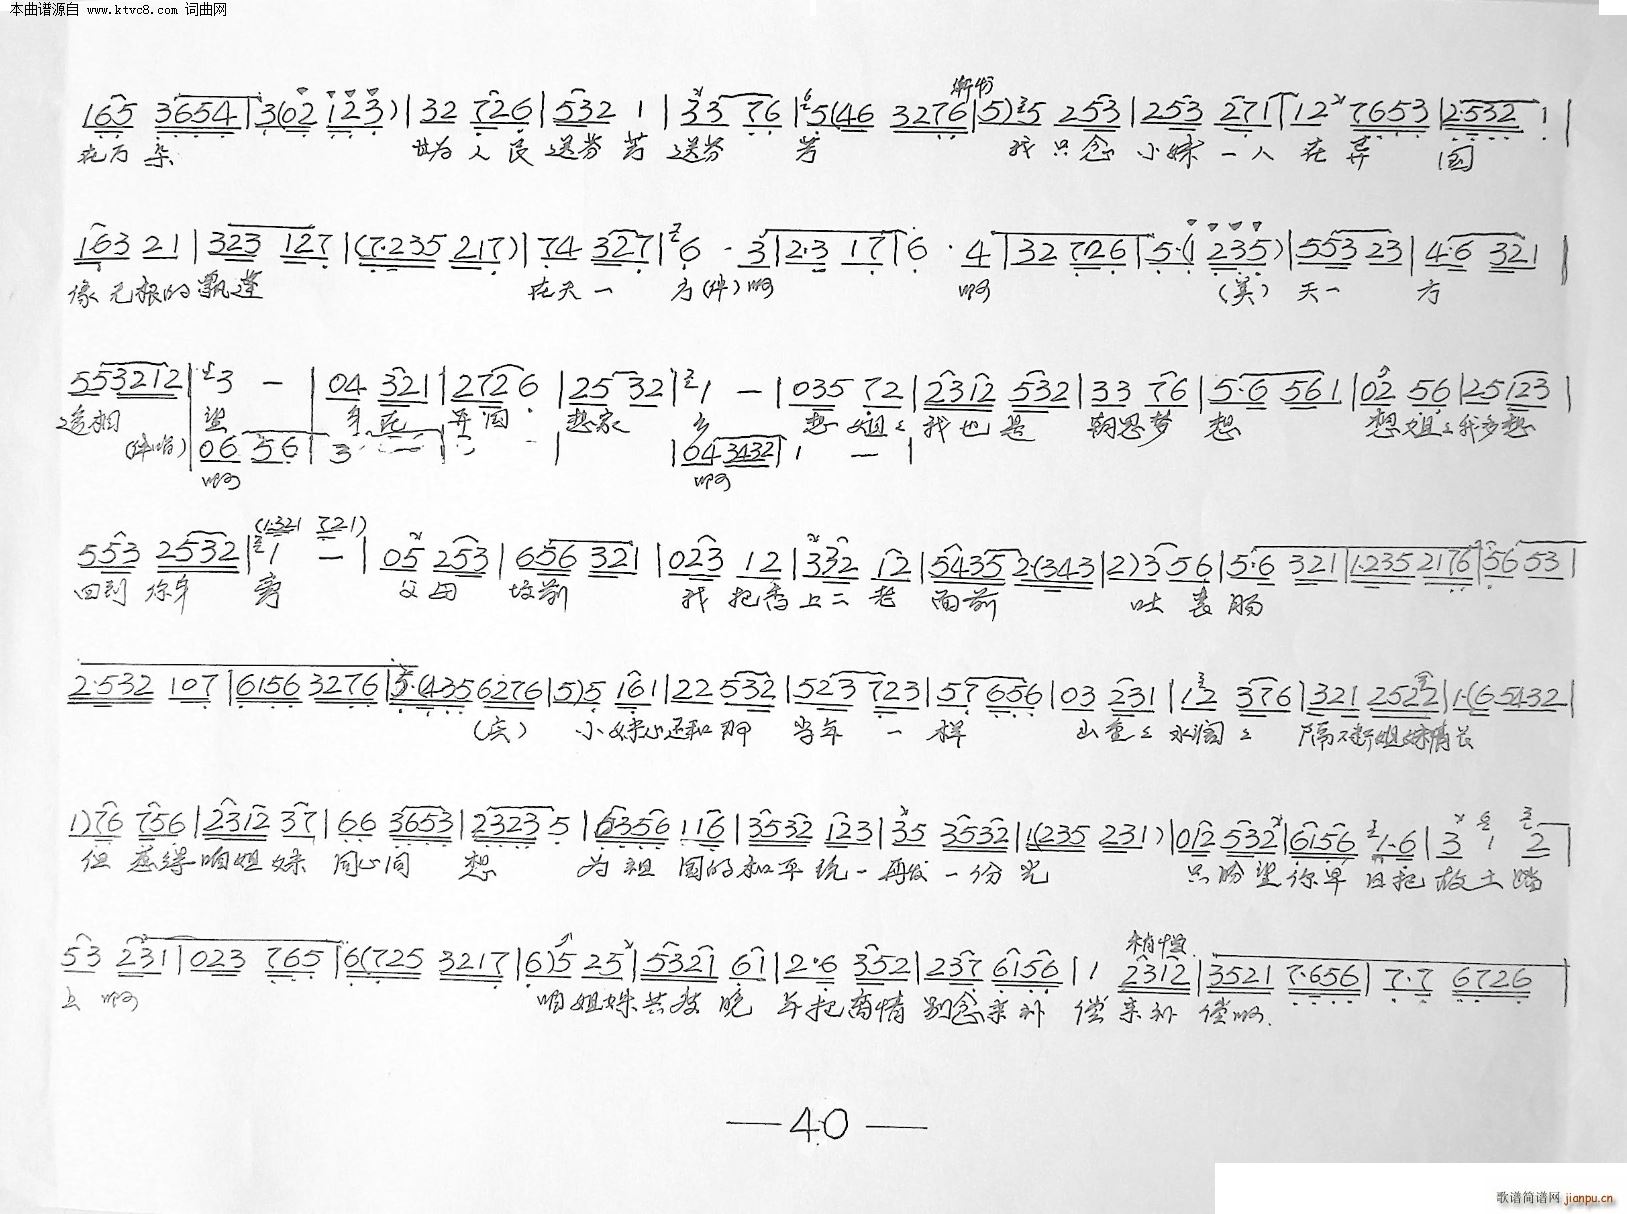 本曲谱源自 www.ktvc8.com 词曲网
渐快
165 3654 | 3(02 123) | 32 726 | 532 1 | 33 76 | 5(46 3276 | 5)5 253 | 253 271 | 12 7653 | 2·532 1 |
花万朵 世为人民送芬芳送芬 芳 我只念小妹一人在异 国
163 21 | 323 127 | (7·235 217) | 74 327 | 6 · 3 | 2·3 17 | 6 · 4 | 32 726 | 5·(1 235) | 553 23 | 4·6 321 |
像无根的飘蓬 在天一 方(伴)啊 啊 (美) 天一 方
553212 | 3 – | 04 321 | 2726 | 25 32 | 1 – | 035 72 | 2312 532 | 33 76 | 5·6 561 | 02 56 | 25123 |
遥相 望 身在 异国 想家 乡 想姐姐我也是朝思梦 想 想姐姐我多想
(伴唱) | 06 56 | 3 | 6432 | 1 – |
啊 啊
(1·321 721)
553 2532 | 1 – | 05 253 | 656 321 | 023 12 | 332 12 | 5435 2(343 | 2)356 | 5·6 321 | 1·235 2176 | 56 53 |
回到你身 旁 父母 坟前 我把香上二老 面前 吐衷肠
2·532 107 | 6156 3276 | 5·(435 6276 | 5)5 161 | 22 532 | 523 723 | 57656 | 03 231 | 12 376 | 321 2522 | 1·(65432 |
小妹心还和那 当年 一样 山重重水阔重 隔不断姐妹情长
1)76 756 | 2312 37 | 66 3653 | 2323 5 | 6356 116 | 3532 123 | 35 3532 | 1(235 231) | 012 532 | 6156 1·6 | 3 1 2 |
但愿得咱姐妹 同心同 想 为祖国的和平统一再发一份光 只盼望你早日把故土踏
稍慢
53 231 | 023 765 | 6(725 3217 | 6)5 25 | 5321 61 | 2·6 352 | 237 6156 | 1 2312 | 3521 7·656 | 7·7 6726 |
上啊 咱姐妹共度晚年把离情别念来补偿来补偿啊
— 40 —
歌谱简谱网 jianpu.cn